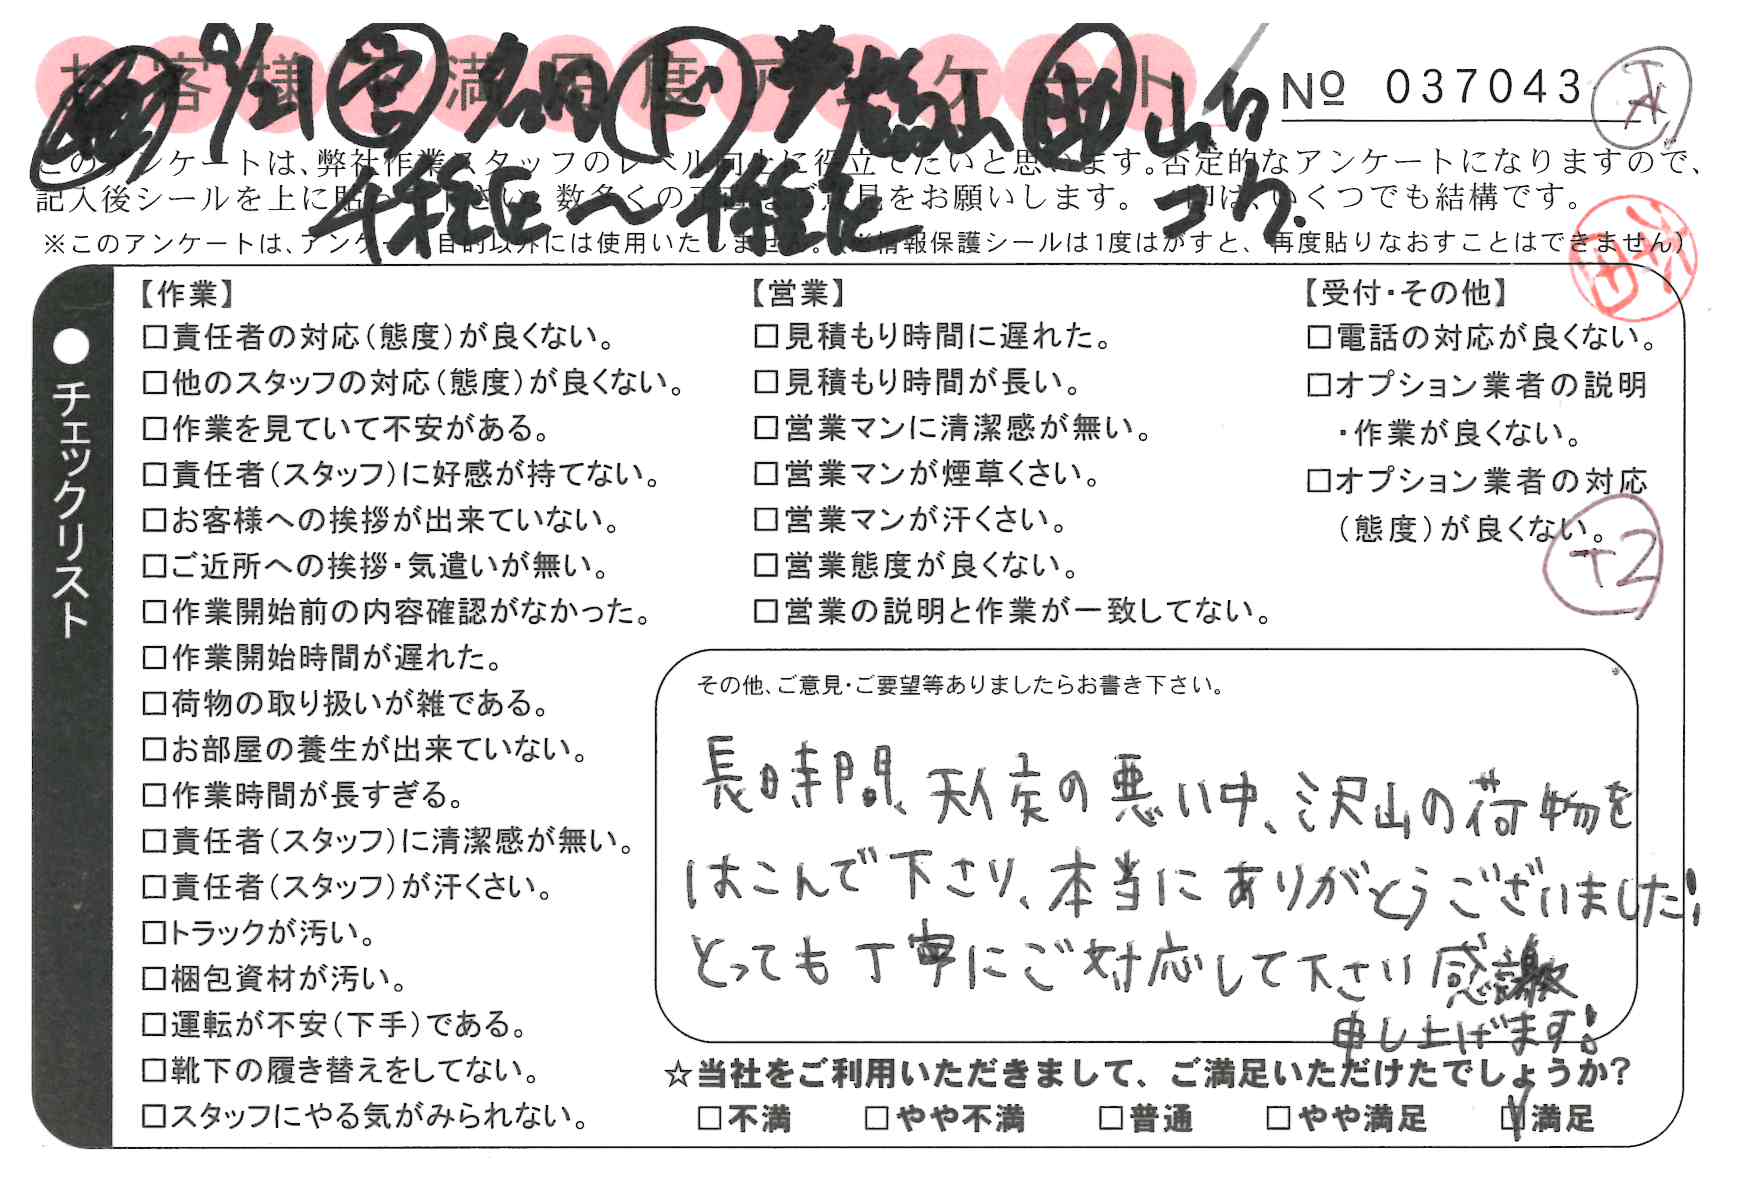 お客様不満足度アンケート
9/21 営 名田 ド 芦蕊山 助 山谷
No 037043
このアンケートは、弊社作業スタッフのレベル向上に役立てたいと思います。否定的なアンケートになりますので、
記入後シールを上に貼って下さい。数多くの正直なご意見をお願いします。✓印は、いくつでも結構です。
千種区〜千種区 コウ.
※このアンケートは、アンケート目的以外には使用いたしません。(※情報保護シールは1度はがすと、再度貼りなおすことはできません)
●チェックリスト
【作業】
□責任者の対応(態度)が良くない。
□他のスタッフの対応(態度)が良くない。
□作業を見ていて不安がある。
□責任者(スタッフ)に好感が持てない。
□お客様への挨拶が出来ていない。
□ご近所への挨拶・気遣いが無い。
□作業開始前の内容確認がなかった。
□作業開始時間が遅れた。
□荷物の取り扱いが雑である。
□お部屋の養生が出来ていない。
□作業時間が長すぎる。
□責任者(スタッフ)に清潔感が無い。
□責任者(スタッフ)が汗くさい。
□トラックが汚い。
□梱包資材が汚い。
□運転が不安(下手)である。
□靴下の履き替えをしてない。
□スタッフにやる気がみられない。
【営業】
□見積もり時間に遅れた。
□見積もり時間が長い。
□営業マンに清潔感が無い。
□営業マンが煙草くさい。
□営業マンが汗くさい。
□営業態度が良くない。
□営業の説明と作業が一致してない。
【受付・その他】
□電話の対応が良くない。
□オプション業者の説明
・作業が良くない。
□オプション業者の対応
(態度)が良くない。
+2
その他、ご意見・ご要望等ありましたらお書き下さい。
長時間、天候の悪い中、沢山の荷物を
はこんで下さり、本当にありがとうございました!
とっても丁寧にご対応して下さい感謝
申し上げます!
☆当社をご利用いただきまして、ご満足いただけたでしょうか?
□不満 □やや不満 □普通 □やや満足 ☑満足